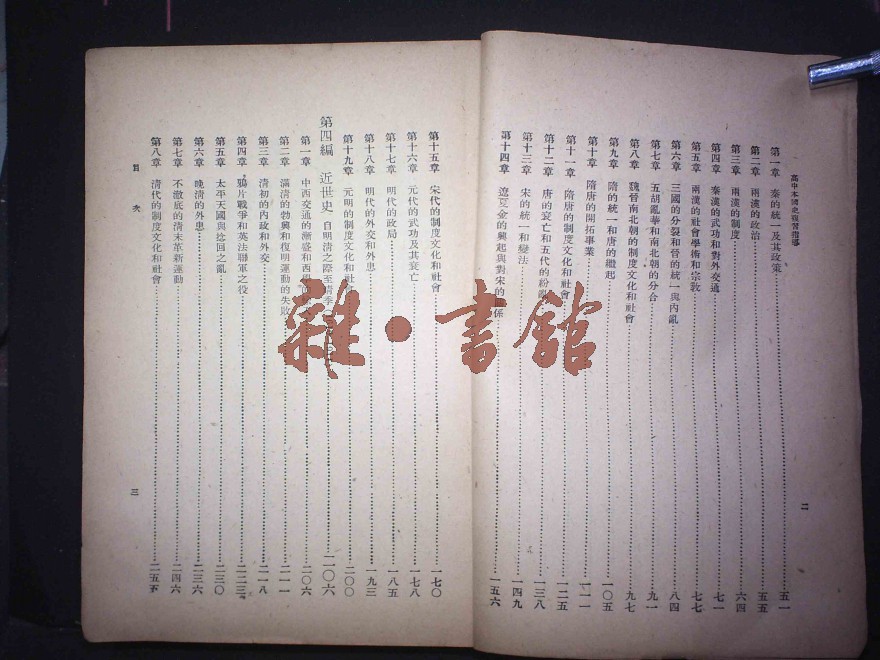 高中本國史複習指導
第一章 秦的統一及其政策 五一
第二章 兩漢的政治 五五
第三章 兩漢的制度 六四
第四章 秦漢的武功和對外交通 七一
第五章 兩漢的社會學術和宗教 七七
第六章 三國的分裂和晉的統一與內亂 八四
第七章 五胡亂華和南北朝的分合 九一
第八章 魏晉南北朝的制度文化和社會 九七
第九章 隋的統一和唐的繼起 一〇五
第十章 隋唐的開拓事業 一一一
第十一章 隋唐的制度文化和社會 一二五
第十二章 唐的衰亡和五代的紛 一三八
第十三章 宋的統一和變法 一四九
第十四章 遼夏金的興起與對宋的關係 一五六
二
第十五章 宋代的制度文化和社會 一七〇
第十六章 元代的武功及其衰亡 一七八
第十七章 明代的政局 一八五
第十八章 明代的外交和外患 一九三
第十九章 元明的制度文化和社 二〇〇
第四編 近世史 自明清之際至清季 二〇六
第一章 中西交通的漸盛和西 二〇六
第二章 滿清的勃興和復明運動的失敗 二一一
第三章 清初的內政和外交 二一八
第四章 鴉片戰爭和英法聯軍之役 二二三
第五章 太平天國與捻回之亂 二三〇
第六章 晚清的外患 二三六
第七章 不徹底的清末革新運動 二四六
第八章 清代的制度文化和社會 二五五
目次
三
雜·書館